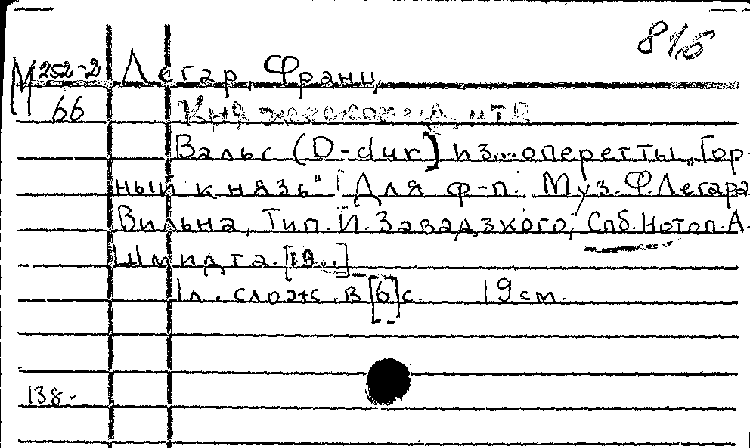 81б
М 252-2 Легар, Франц
66
Вальс (D-dur) из оперетты „Гор-
ный князь" [Для ф-п. Муз. Ф. Легара
Вильна, Тип. И. Завадзкого, Спб. Нотоп. А.
Шмидта. [19..]
1 л. слож. в [6] с. 19 cm.
138-